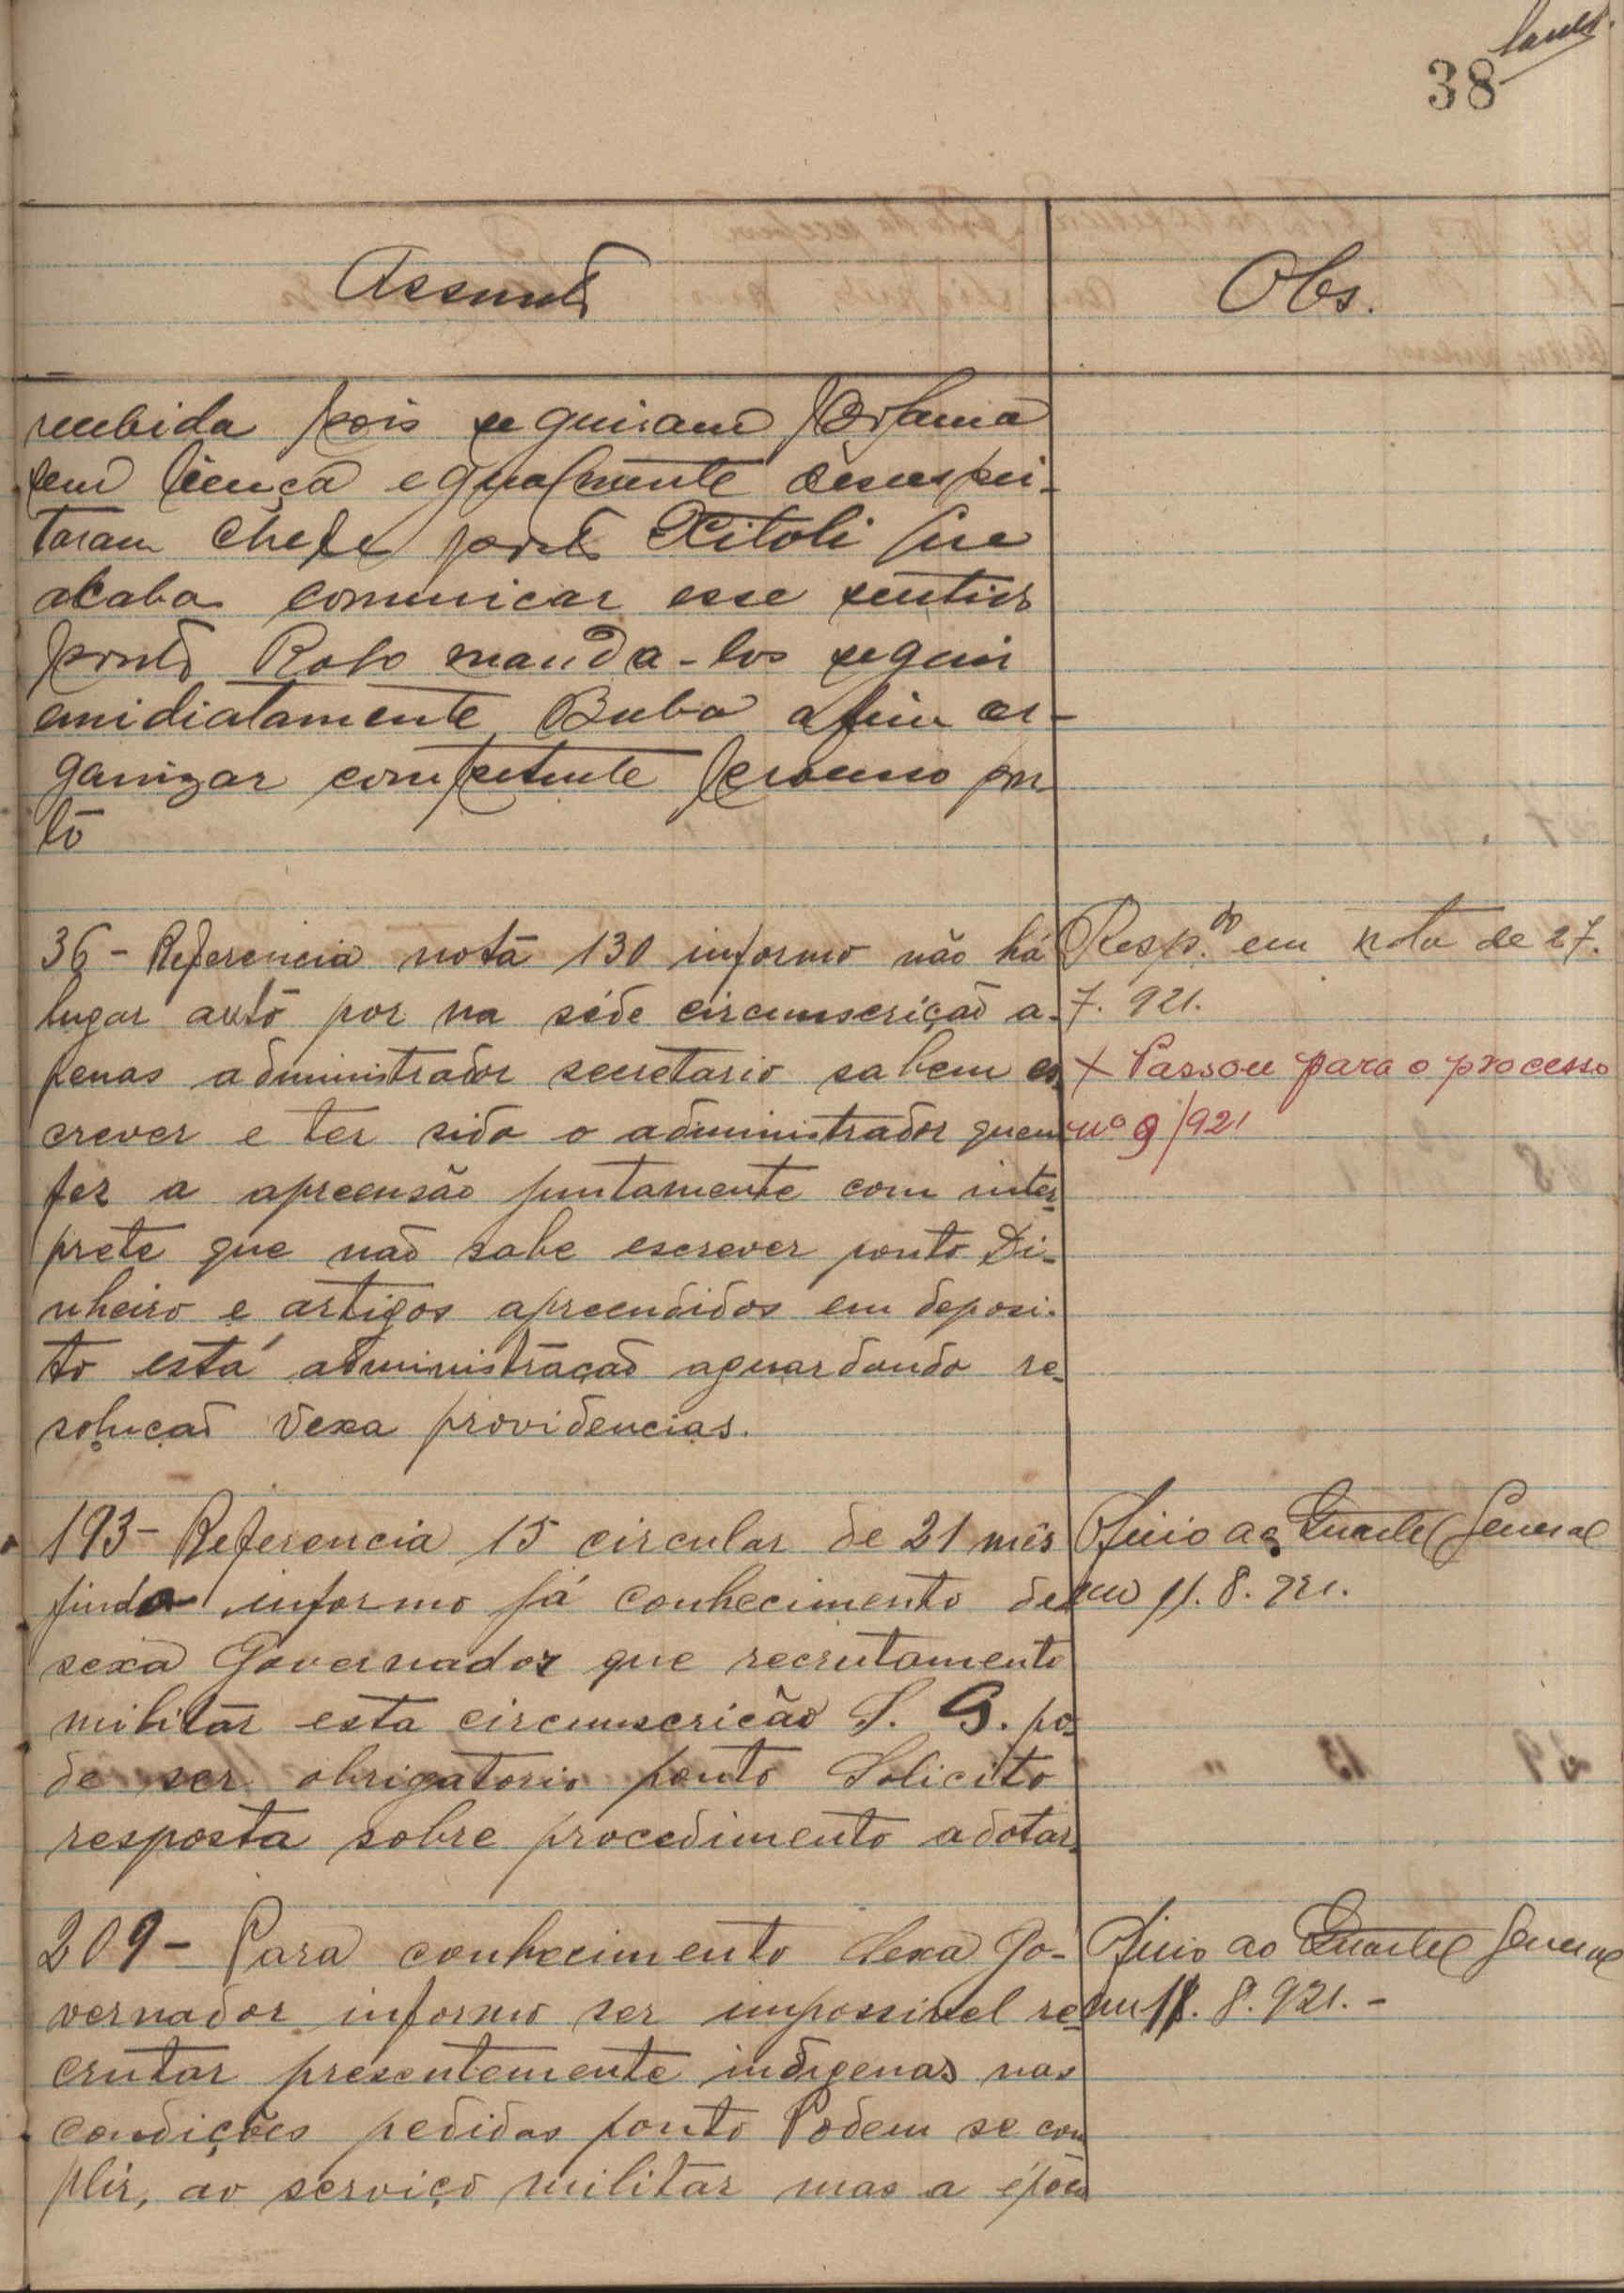 38
Assunto
Obs.
recebida pois seguiram Bolama
sem licença egualmente desrespei-
taram chefe posto Xitoli que
acaba comunicar esse sentido
ponto Rogo manda-los seguir
imidiatamente Buba afim or-
ganizar competente processo pon
to
36 - Referencia nota 130 informo não há
lugar auto por na séde circumscrição a-
penas administrador secretario sabem es
crever e ter sido o administrador quem
fez a apreensão juntamente com inter-
prete que não sabe escrever ponto Di-
nheiro e artigos apreendidos em deposi-
to está administração aguardando re-
solução Vexa providencias.
Resp.do em nota de 27.
7. 921.
+ Passou para o processo
nº 9/921
193 - Referencia 15 circular de 21 mês
findo informo já conhecimento de
sexa Governador que recrutamento
militar esta circumscricão S. G. po-
de ser obrigatorio ponto Solicito
resposta sobre procedimento adotar.
Oficio ao Quartel General
em 11. 8. 921.
209 - Para conhecimento Sexa Go-
vernador informo ser impossivel re-
crutar presentemente indigenas nas
condições pedidas ponto Podem se com
plir, ao serviço militar mas a época
Oficio ao Quartel General
em 11. 8. 921. -